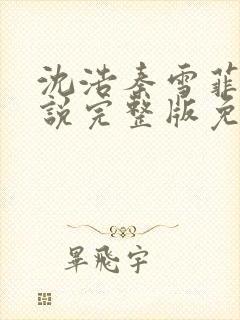 沈浩秦雪菲
說完整版免
畢飛宇